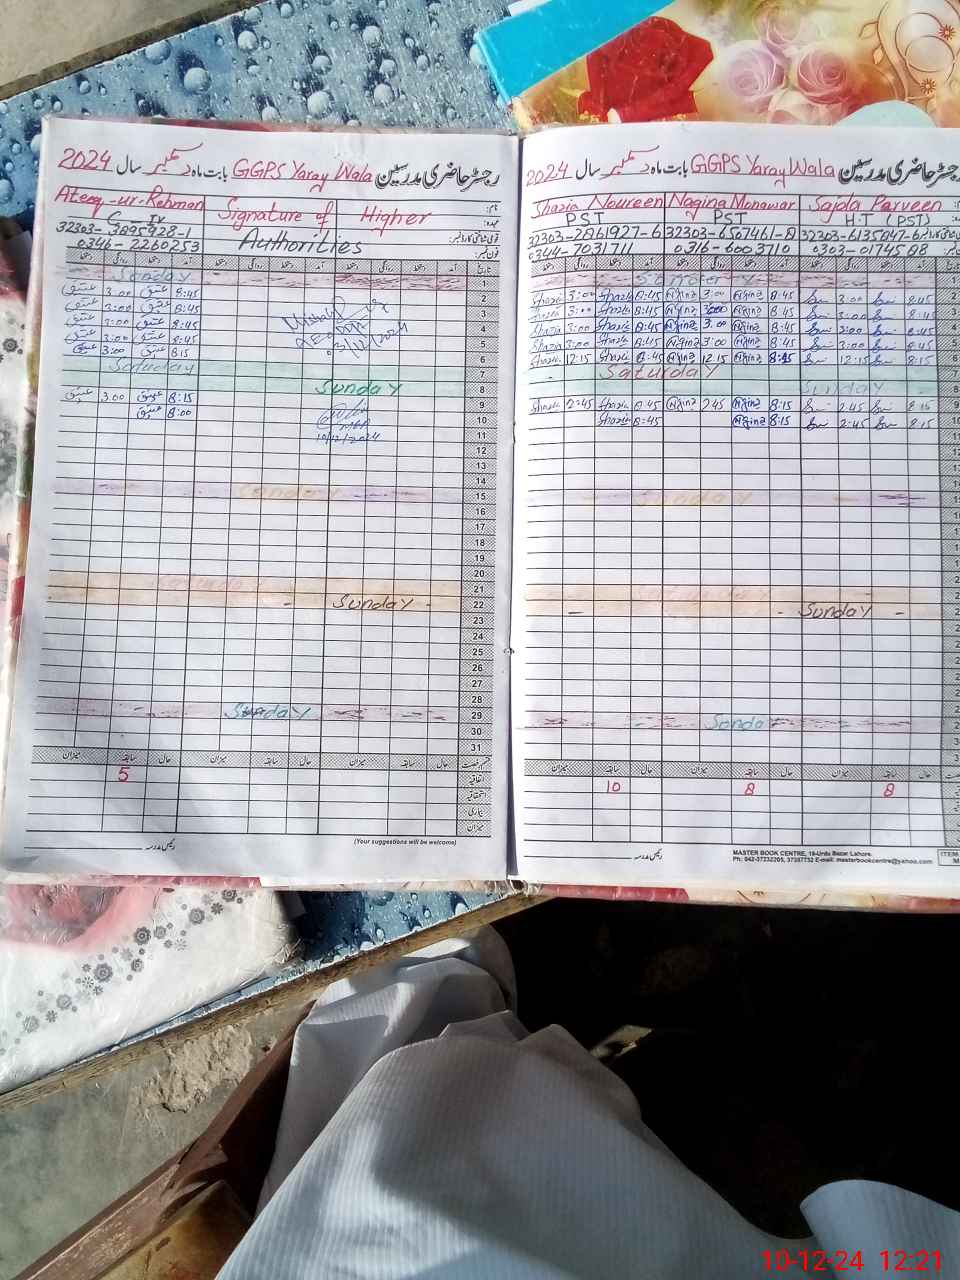 رجسٹر حاضری مدرسین GGPS Yaray Wala بابت ماہ دسمبر سال 2024
Ateeq-ur-Rehman Signature of Higher
C_IV
32303-3095928-1 Authorities
0346-2260253
تاریخ آمد دستخط روانگی دستخط آمد دستخط روانگی دستخط آمد دستخط روانگی دستخط
1 Sunday
2 8:45 عتیق 3:00 عتیق
3 8:45 عتیق 3:00 عتیق
4 8:45 عتیق 3:00 عتیق
5 8:45 عتیق 3:00 عتیق
6 8:15 عتیق 3:00 عتیق
7 Saturday
8 Sunday
9 8:15 عتیق 3:00 عتیق
10 8:00 عتیق
10/12/2024
11
12
13
14
15 Sunday
16
17
18
19
20
21 Saturday
22 Sunday
23
24
25
26
27
28
29 Sunday
30
31
حال سابقہ میزان حال سابقہ میزان حال سابقہ میزان
اتفاقیہ 5
استحقاقیہ
بیماری
میزان
(Your suggestions will be welcome)
رئیس مدرسہ
رجسٹر حاضری مدرسین GGPS Yaray Wala بابت ماہ دسمبر سال 2024
Shazia Noureen Nagina Monawar Sajda Parveen
PST PST H.T (PST)
32303-2861927-6 32303-6507461-8 32303-6135047-6
0344-7031711 0316-6003710 0303-0174588
Sunday
Shazia 3:00 Shazia 8:45 Nagina 3:00 Nagina 8:45 3:00 8:45
Shazia 3:00 Shazia 8:45 Nagina 3:00 Nagina 8:45 3:00 8:45
Shazia 3:00 Shazia 8:45 Nagina 3:00 Nagina 8:45 3:00 8:45
Shazia 3:00 Shazia 8:45 Nagina 3:00 Nagina 8:45 3:00 8:45
Shazia 12:15 Shazia 8:45 Nagina 12:15 Nagina 8:45 12:15 8:15
Saturday
Sunday
Shazia 2:45 Shazia 8:45 Nagina 2:45 Nagina 8:15 2:45 8:15
Shazia 8:45 Nagina 8:15 2:45 8:15
Sunday
Saturday
Sunday
Sunda
حال سابقہ میزان حال سابقہ میزان سابقہ میزان
10 8 8
رئیس مدرسہ
MASTER BOOK CENTRE, 18-Urdu Bazar Lahore.
Ph: 042-37232205, 37357732 E-mail: masterbookcentre@yahoo.com
ITEM
10-12-24 12:21